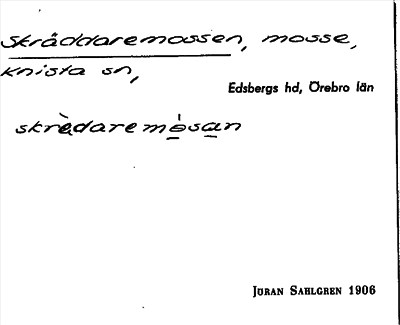 Skräddaremossen, mosse,
Knista sn,
Edsbergs hd, Örebro län
skrèdaremósan
Jöran Sahlgren 1906